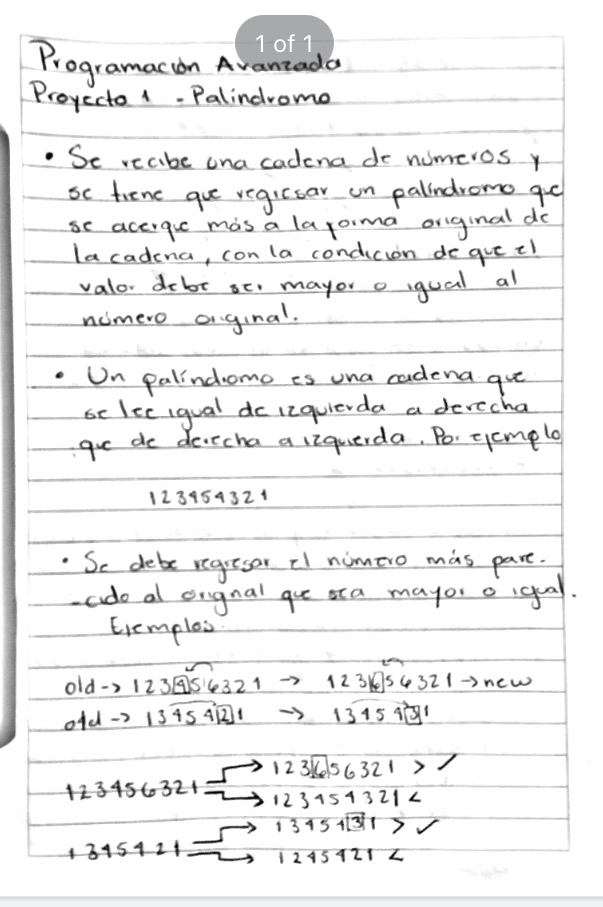 1 of 1
Programación Avanzada
Proyecto 1 - Palíndromo
• Se recibe una cadena de números y
se tiene que regresar un palíndromo que
se acerque más a la forma original de
la cadena, con la condición de que el
valor debe ser mayor o igual al
número original.
• Un palíndromo es una cadena que
se lee igual de izquierda a derecha
que de derecha a izquierda. Por ejemplo
123454321
• Se debe regresar el número más pare-
-cido al orignal que sea mayor o igual.
Ejemplos
old -> 123456321 -> 123656321 -> new
old -> 1345421 -> 1345431
123456321 -> 123656321 > ✓
-> 123454321 <
1345421 -> 1345431 > ✓
-> 1245421 <